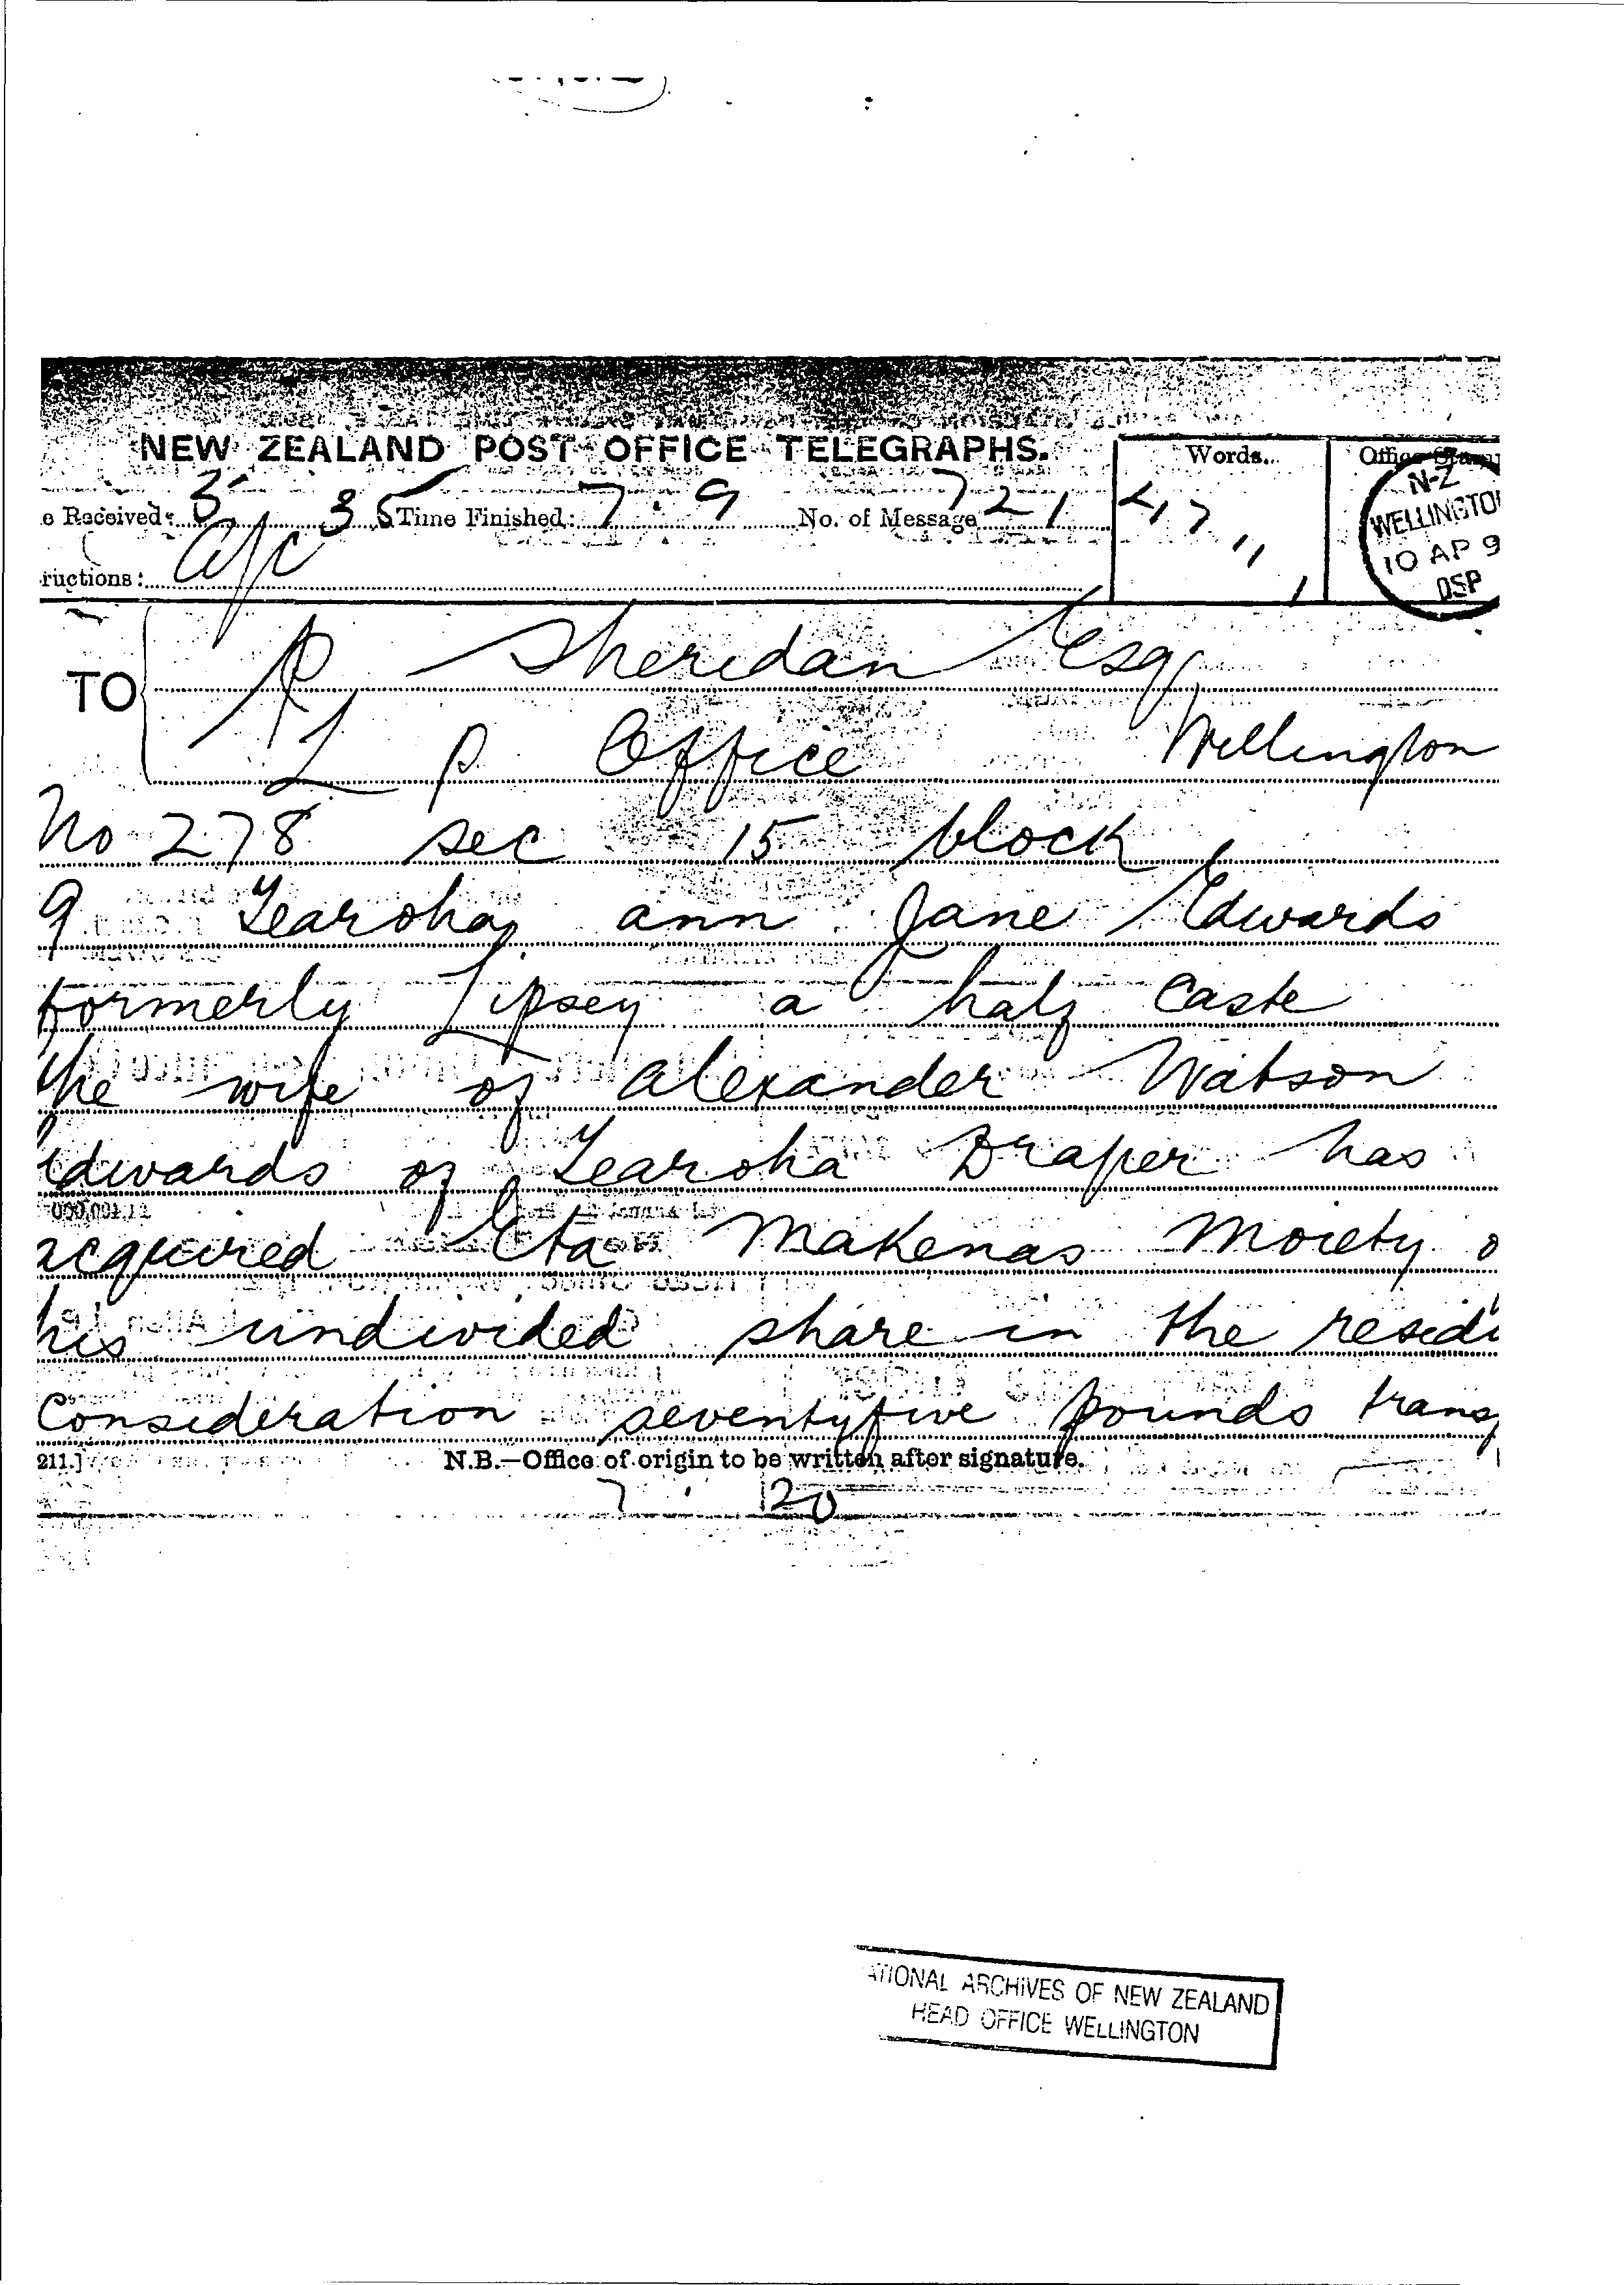 NEW ZEALAND POST OFFICE TELEGRAPHS.
Words.
Office Stamp
e Received: 5 35 Time Finished: 7. 9 No. of Message 721
47
N-Z
WELLINGTO
10 AP 9
OSP
ructions:
TO P Sheridan Esq
L P Office Wellington
No 278 sec 15 block
9 Tearoha ann Jane Edwards
formerly Lipsey a half Caste
the wife of alexander Watson
Edwards of Tearoha Draper has
acquired Eta Makenas Moiety o
his undivided share in the resid
Consideration seventyfive pounds trans
211.] N.B.—Office of origin to be written after signature.
7 . 20
ATIONAL ARCHIVES OF NEW ZEALAND
HEAD OFFICE WELLINGTON